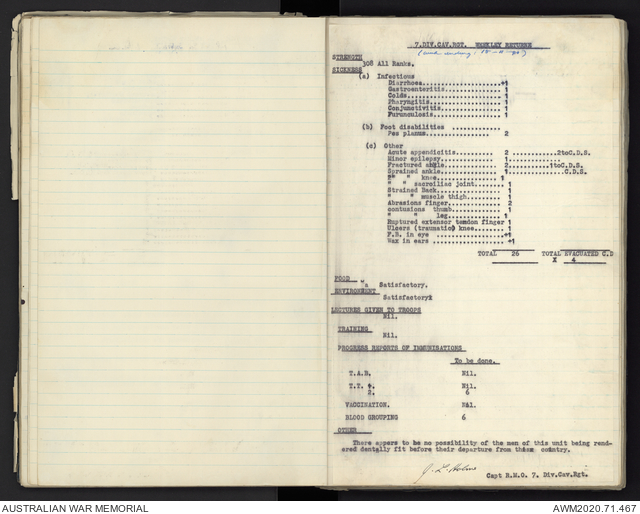 7.DIV.CAV.RGT. WEEKLEY RETURNS
STRENGTH
308 All Ranks.
SICKNESS
(a) Infectious
Diarrhoea......................1
Gastroenteritis................1
Colds..........................1
Pharyngitis....................1
Conjunctivitis.................1
Furunculosis...................1
(b) Foot disabilities ............
Pes planus.................. 2
(c) Other
Acute appendicitis............ 2 ............2toC.D.S.
Minor epilepsy................ 1
Fractured ankle............... 2 ............1toC.D.S.
Sprained ankle................ 1 ............C.D.S.
" " knee................ 1
" " sacroiliac joint....... 1
Strained Back................. 1
" " muscle thigh......... 1
Abrasions finger.............. 2
contusions thumb............. 1
" " leg............. 1
Ruptured extensor tendon finger 1
Ulcers (traumatic) knee....... 1
F.B. in eye .................. 1
Wax in ears .................. 1
TOTAL 26 TOTAL EVACUATED C.D
X 4
FOOD
Satisfactory.
ENVIRONMENT
Satisfactory
LECTURES GIVEN TO TROOPS
Nil.
TRAINING
Nil.
PROGRESS REPORTS OF IMMUNISATIONS
To be done.
T.A.B. Nil.
T.T. Nil.
2. 6
VACCINATION. Nil.
BLOOD GROUPING 6
OTHER
There appers to be no possibility of the men of this unit being rend-
ered dentally fit before their departure from this country.
Capt R.M.O. 7. Div.Cav.Rgt.
AUSTRALIAN WAR MEMORIAL
AWM2020.71.467